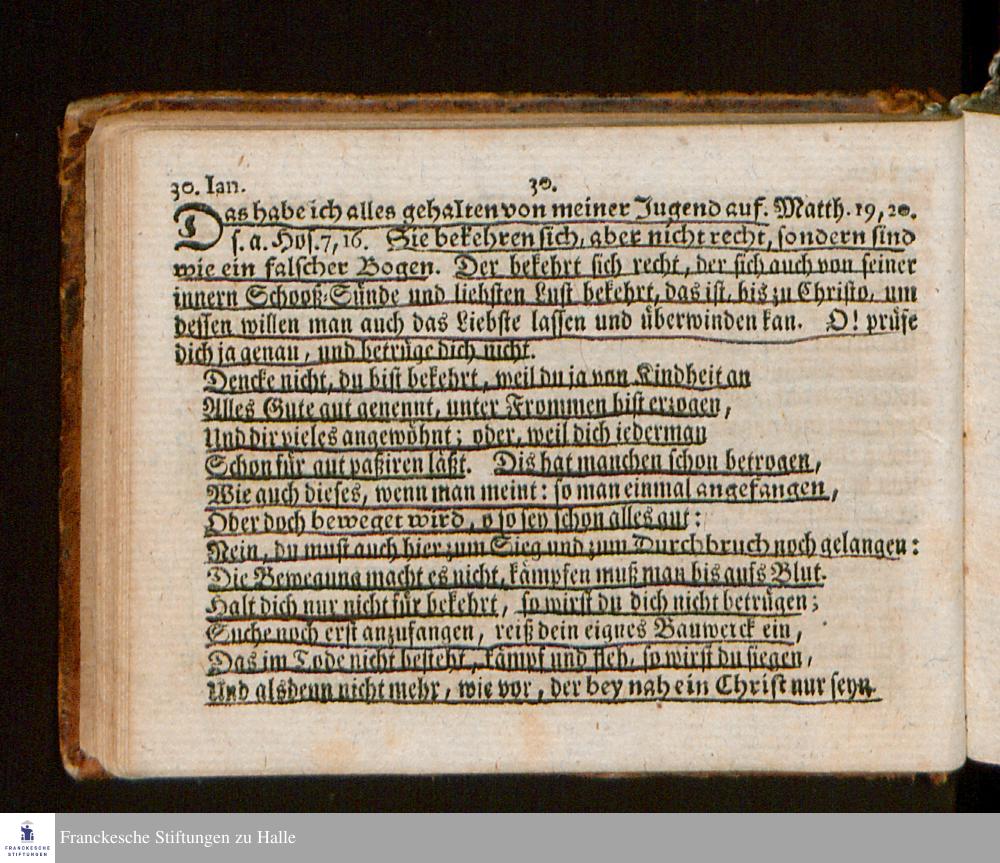 30. Ian. 30.
Das habe ich alles gehalten von meiner Jugend auf. Matth. 19, 20.
s. a. Hos. 7, 16. Sie bekehren sich, aber nicht recht, sondern sind
wie ein falscher Bogen. Der bekehrt sich recht, der sich auch von seiner
innern Schooß-Sünde und liebsten Lust bekehrt, das ist, bis zu Christo, um
dessen willen man auch das Liebste lassen und überwinden kan. O! prüfe
dich ja genau, und betrüge dich nicht.
Dencke nicht, du bist bekehrt, weil du ja von Kindheit an
Alles Gute gut genennt, unter Frommen bist erzogen,
Und dir vieles angewöhnt; oder, weil dich iederman
Schon für gut paßiren läßt. Dis hat manchen schon betrogen,
Wie auch dieses, wenn man meint: so man einmal angefangen,
Ober doch beweget wird, o so sey schon alles gut:
Nein, du must auch hier zum Sieg und zum Durchbruch noch gelangen:
Die Bewegung macht es nicht, kämpfen muß man bis aufs Blut.
Halt dich nur nicht für bekehrt, so wirst du dich nicht betrügen;
Suche noch erst anzufangen, reiß dein eignes Bauwerck ein,
Das im Tode nicht besteht, kämpf und fleh, so wirst du siegen,
Und alsdenn nicht mehr, wie vor, der bey nah ein Christ nur seyn.
FRANCKESCHE
STIFTUNGEN
Franckesche Stiftungen zu Halle